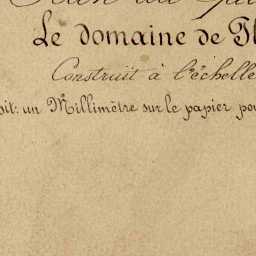 Le domaine de
Construit à l'échelle
oit: un Millimètre sur le papier po